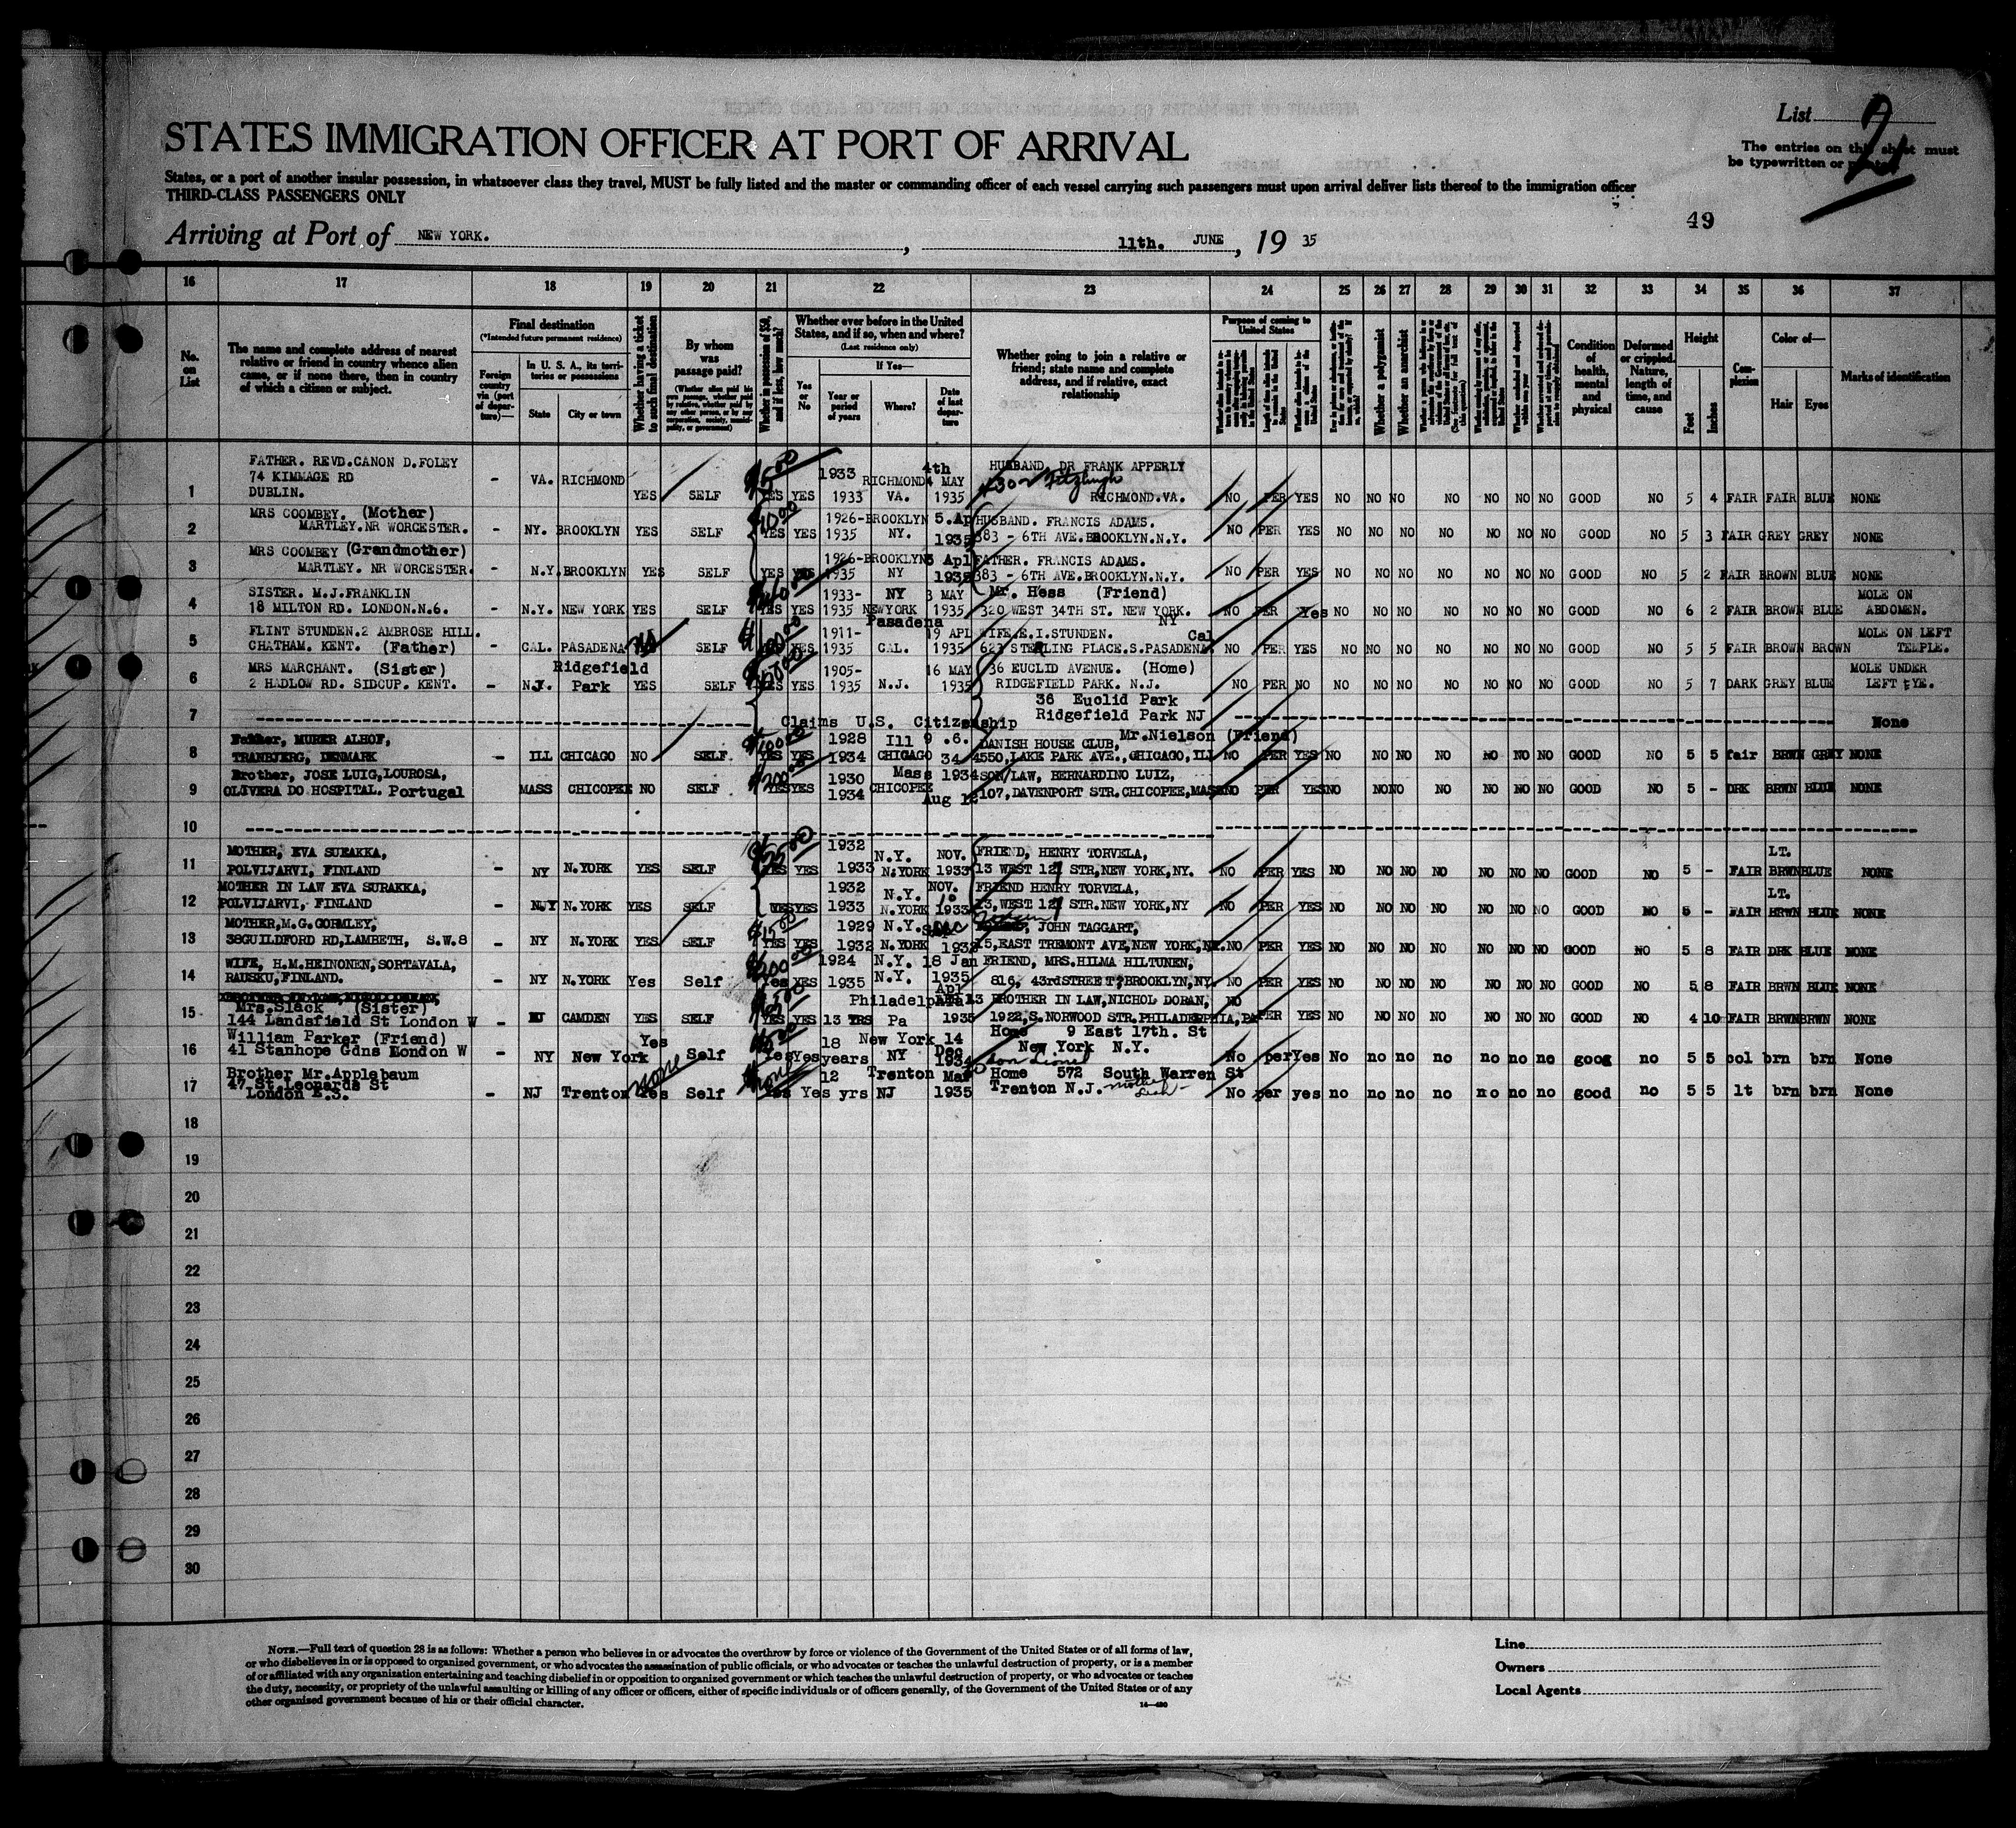 List
A
2
The entries on this sheet must
be typewritten or printed
STATES IMMIGRATION OFFICER AT PORT OF ARRIVAL
States, or a port of another insular possession, in whatsoever class they travel, MUST be fully listed and the master or commanding officer of each vessel carrying such passengers must upon arrival deliver lists thereof to the immigration officer
THIRD-CLASS PASSENGERS ONLY
49
Arriving at Port of NEW YORK. , 11th. JUNE , 19 35
16 17 18 19 20 21 22 23 24 25 26 27 28 29 30 31 32 33 34 35 36 37
No. on List
The name and complete address of nearest relative or friend in country whence alien came, or if none there, then in country of which a citizen or subject.
Final destination
(*Intended future permanent residence)
Foreign country via (port of departure)—
In U. S. A., its territories or possessions
State
City or town
Whether having a ticket to such final destination
By whom was passage paid?
Whether in possession of $50, and if less, how much?
Whether ever before in the United States, and if so, when and where?
(Last residence only)
Yes or No
If Yes—
Year or period of years
Where?
Date of last departure
Whether going to join a relative or friend; state name and complete address, and if relative, exact relationship
Purpose of coming to United States
Whether a polygamist
Whether an anarchist
Condition of health, mental and physical
Deformed or crippled. Nature, length of time, and cause
Height
Feet
Inches
Complexion
Color of—
Hair
Eyes
Marks of identification
FATHER. REVD.CANON D.FOLEY 4th HUSBAND DR FRANK APPERLY
74 KIMMAGE RD - VA. RICHMOND 1933 RICHMOND MAY 4302 Fitzhugh
1 DUBLIN. YES SELF YES YES 1933 VA. 1935 RICHMOND.VA. NO PER YES NO NO NO NO NO NO NO GOOD NO 5 4 FAIR FAIR BLUE NONE
MRS COOMBEY. (Mother) 1926- BROOKLYN 5.Ap HUSBAND. FRANCIS ADAMS.
2 MARTLEY.NR WORCESTER. - NY. BROOKLYN YES SELF YES YES 1935 NY. 1935 383 - 6TH AVE.BROOKLYN.N.Y. NO PER YES NO NO NO NO NO NO NO GOOD NO 5 3 FAIR GREY GREY NONE
MRS COOMBEY (Grandmother) 1926-BROOKLYN 5 Apl FATHER. FRANCIS ADAMS.
3 MARTLEY. NR WORCESTER. - N.Y. BROOKLYN YES SELF YES 1935 NY 1935 383 - 6TH AVE.BROOKLYN.N.Y. NO PER YES NO NO NO NO NO NO NO GOOD NO 5 2 FAIR BROWN BLUE NONE
SISTER. M.J.FRANKLIN 1933- NY 3 MAY Mr. Hess (Friend) MOLE ON
4 18 MILTON RD. LONDON.N.6. - N.Y. NEW YORK YES SELF YES YES 1935 NEWYORK 1935 320 WEST 34TH ST. NEW YORK. NY NO PER Yes NO NO NO NO NO NO NO GOOD NO 6 2 FAIR BROWN BLUE ABDOMEN.
FLINT STUNDEN.2 AMBROSE HILL. 1911- Pasadena 19 APL WIFE.E.I.STUNDEN. Cal MOLE ON LEFT
5 CHATHAM. KENT. (Father) - CAL. PASADENA SELF YES 1935 CAL. 1935 623 STERLING PLACE.S.PASADENA NO PER YES NO NO NO NO NO NO NO GOOD NO 5 5 FAIR BROWN BROWN TEMPLE.
MRS MARCHANT. (Sister) Ridgefield 1905- 16 MAY 36 EUCLID AVENUE. (Home) MOLE UNDER
6 2 HADLOW RD. SIDCUP. KENT. - N.J. Park YES SELF YES YES 1935 N.J. 1935 RIDGEFIELD PARK. N.J. NO PER NO NO NO NO NO NO NO NO GOOD NO 5 7 DARK GREY BLUE LEFT EYE.
36 Euclid Park
7 Claims U.S. Citizenship Ridgefield Park NJ None
Father, MURER ALHOF, $100.00 1928 Ill 9 .6. DANISH HOUSE CLUB, Mr.Nielson (Friend)
8 TRANBJERG, DENMARK - ILL CHICAGO NO SELF YES YES 1934 CHICAGO 34 4550,LAKE PARK AVE.,CHICAGO,ILL NO PER YES NO NO NO NO NO NO NO GOOD NO 5 5 fair BRWN GREY NONE
Brother, JOSE LUIG,LOUROSA, $200.00 1930 Mass 1934 SON/LAW, BERNARDINO LUIZ,
9 OLIVERA DO HOSPITAL. Portugal MASS CHICOPEE NO SELF YES YES 1934 CHICOPEE Aug 12 107,DAVENPORT STR.CHICOPEE,MASS NO PER YES NO NO NO NO NO NO NO GOOD NO 5 - DRK BRWN BLUE NONE
10
MOTHER, EVA SURAKKA, 1932 N.Y. NOV. FRIEND, HENRY TORVELA, LT.
11 POLVIJARVI, FINLAND - NY N.YORK YES SELF YES YES 1933 N.YORK 1933 13 WEST 127 STR,NEW YORK,NY. NO PER YES NO NO NO NO NO NO NO GOOD NO 5 - FAIR BRWN BLUE NONE
MOTHER IN LAW EVA SURAKKA, 1932 N.Y. NOV. 10 FRIEND HENRY TORVELA, LT.
12 POLVIJARVI, FINLAND - N.Y N.YORK YES SELF YES YES 1933 N.YORK 1933 13, WEST 127 STR.NEW YORK,NY NO PER YES NO NO NO NO NO NO NO GOOD NO 5 - FAIR BRWN BLUE NONE
MOTHER,M.G.GORMLEY, $15.00 1929 N.Y. JOHN TAGGART,
13 38GUILDFORD RD,LAMBETH, S.W.8 - NY N.YORK YES SELF YES YES 1932 N.YORK 1932 15,EAST TREMONT AVE,NEW YORK,NY. NO PER YES NO NO NO NO NO NO NO GOOD NO 5 8 FAIR DRK BLUE NONE
WIFE, H.M.HEINONEN,SORTAVALA, $200.00 1924 N.Y. 18 Jan FRIEND, MRS.HILMA HILTUNEN,
14 RAUSKU,FINLAND. - NY N.YORK Yes Self Yes YES 1935 N.Y. 1935 816, 43rdSTREET,BROOKLYN,NY. NO PER YES NO NO NO NO NO NO NO GOOD NO 5 8 FAIR BRWN BLUE NONE
Mrs.Slack (Sister) Philadelphia Apr 13 BROTHER IN LAW,NICHOL DORAN, NO
15 144 Landsfield St London W - NJ CAMDEN YES SELF YES YES 13 YRS Pa 1935 1922,S.NORWOOD STR,PHILADELPHIA,PA PER YES NO NO NO NO NO NO NO GOOD NO 4 10 FAIR BRWN BRWN NONE
William Parker (Friend) Yes 18 New York 14 Home 9 East 17th. St
16 41 Stanhope Gdns London W - NY New York Self Yes Yes years NY Dec 1934 New York N.Y. No per Yes No no no no no no no good no 5 5 col brn brn None
Son Lionel
Brother Mr.Applebaum none none 12 Trenton Mar Home 572 South Warren St
17 47 St Leonards St - NJ Trenton Yes Self Yes Yes yrs NJ 1935 Trenton N.J. mother Leah No per yes no no no no no no no good no 5 5 lt brn brn None
London E.3.
18
19
20
21
22
23
24
25
26
27
28
29
30
NOTE.—Full text of question 28 is as follows: Whether a person who believes in or advocates the overthrow by force or violence of the Government of the United States or of all forms of law,
or who disbelieves in or is opposed to organized government, or who advocates the assassination of public officials, or who advocates or teaches the unlawful destruction of property, or is a member
of or affiliated with any organization entertaining and teaching disbelief in or opposition to organized government or which teaches the unlawful destruction of property, or who advocates or teaches
the duty, necessity, or propriety of the unlawful assaulting or killing of any officer or officers, either of specific individuals or of officers generally, of the Government of the United States or of any
other organized government because of his or their official character.
14—490
Line
Owners
Local Agents